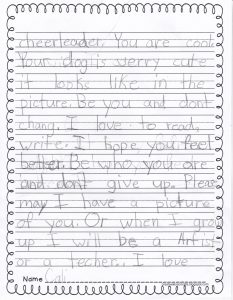 cheerleader. You are cool
Your dog is verry cute
it looks like in the
picture. Be you and dont
chang. I love to read,
write. I hope you feel
better. Be who, you are
and dont give up. Please
may I have a picture
of you. Or when I grow
up I will be a Artist
or a techer. I love
Name Cali